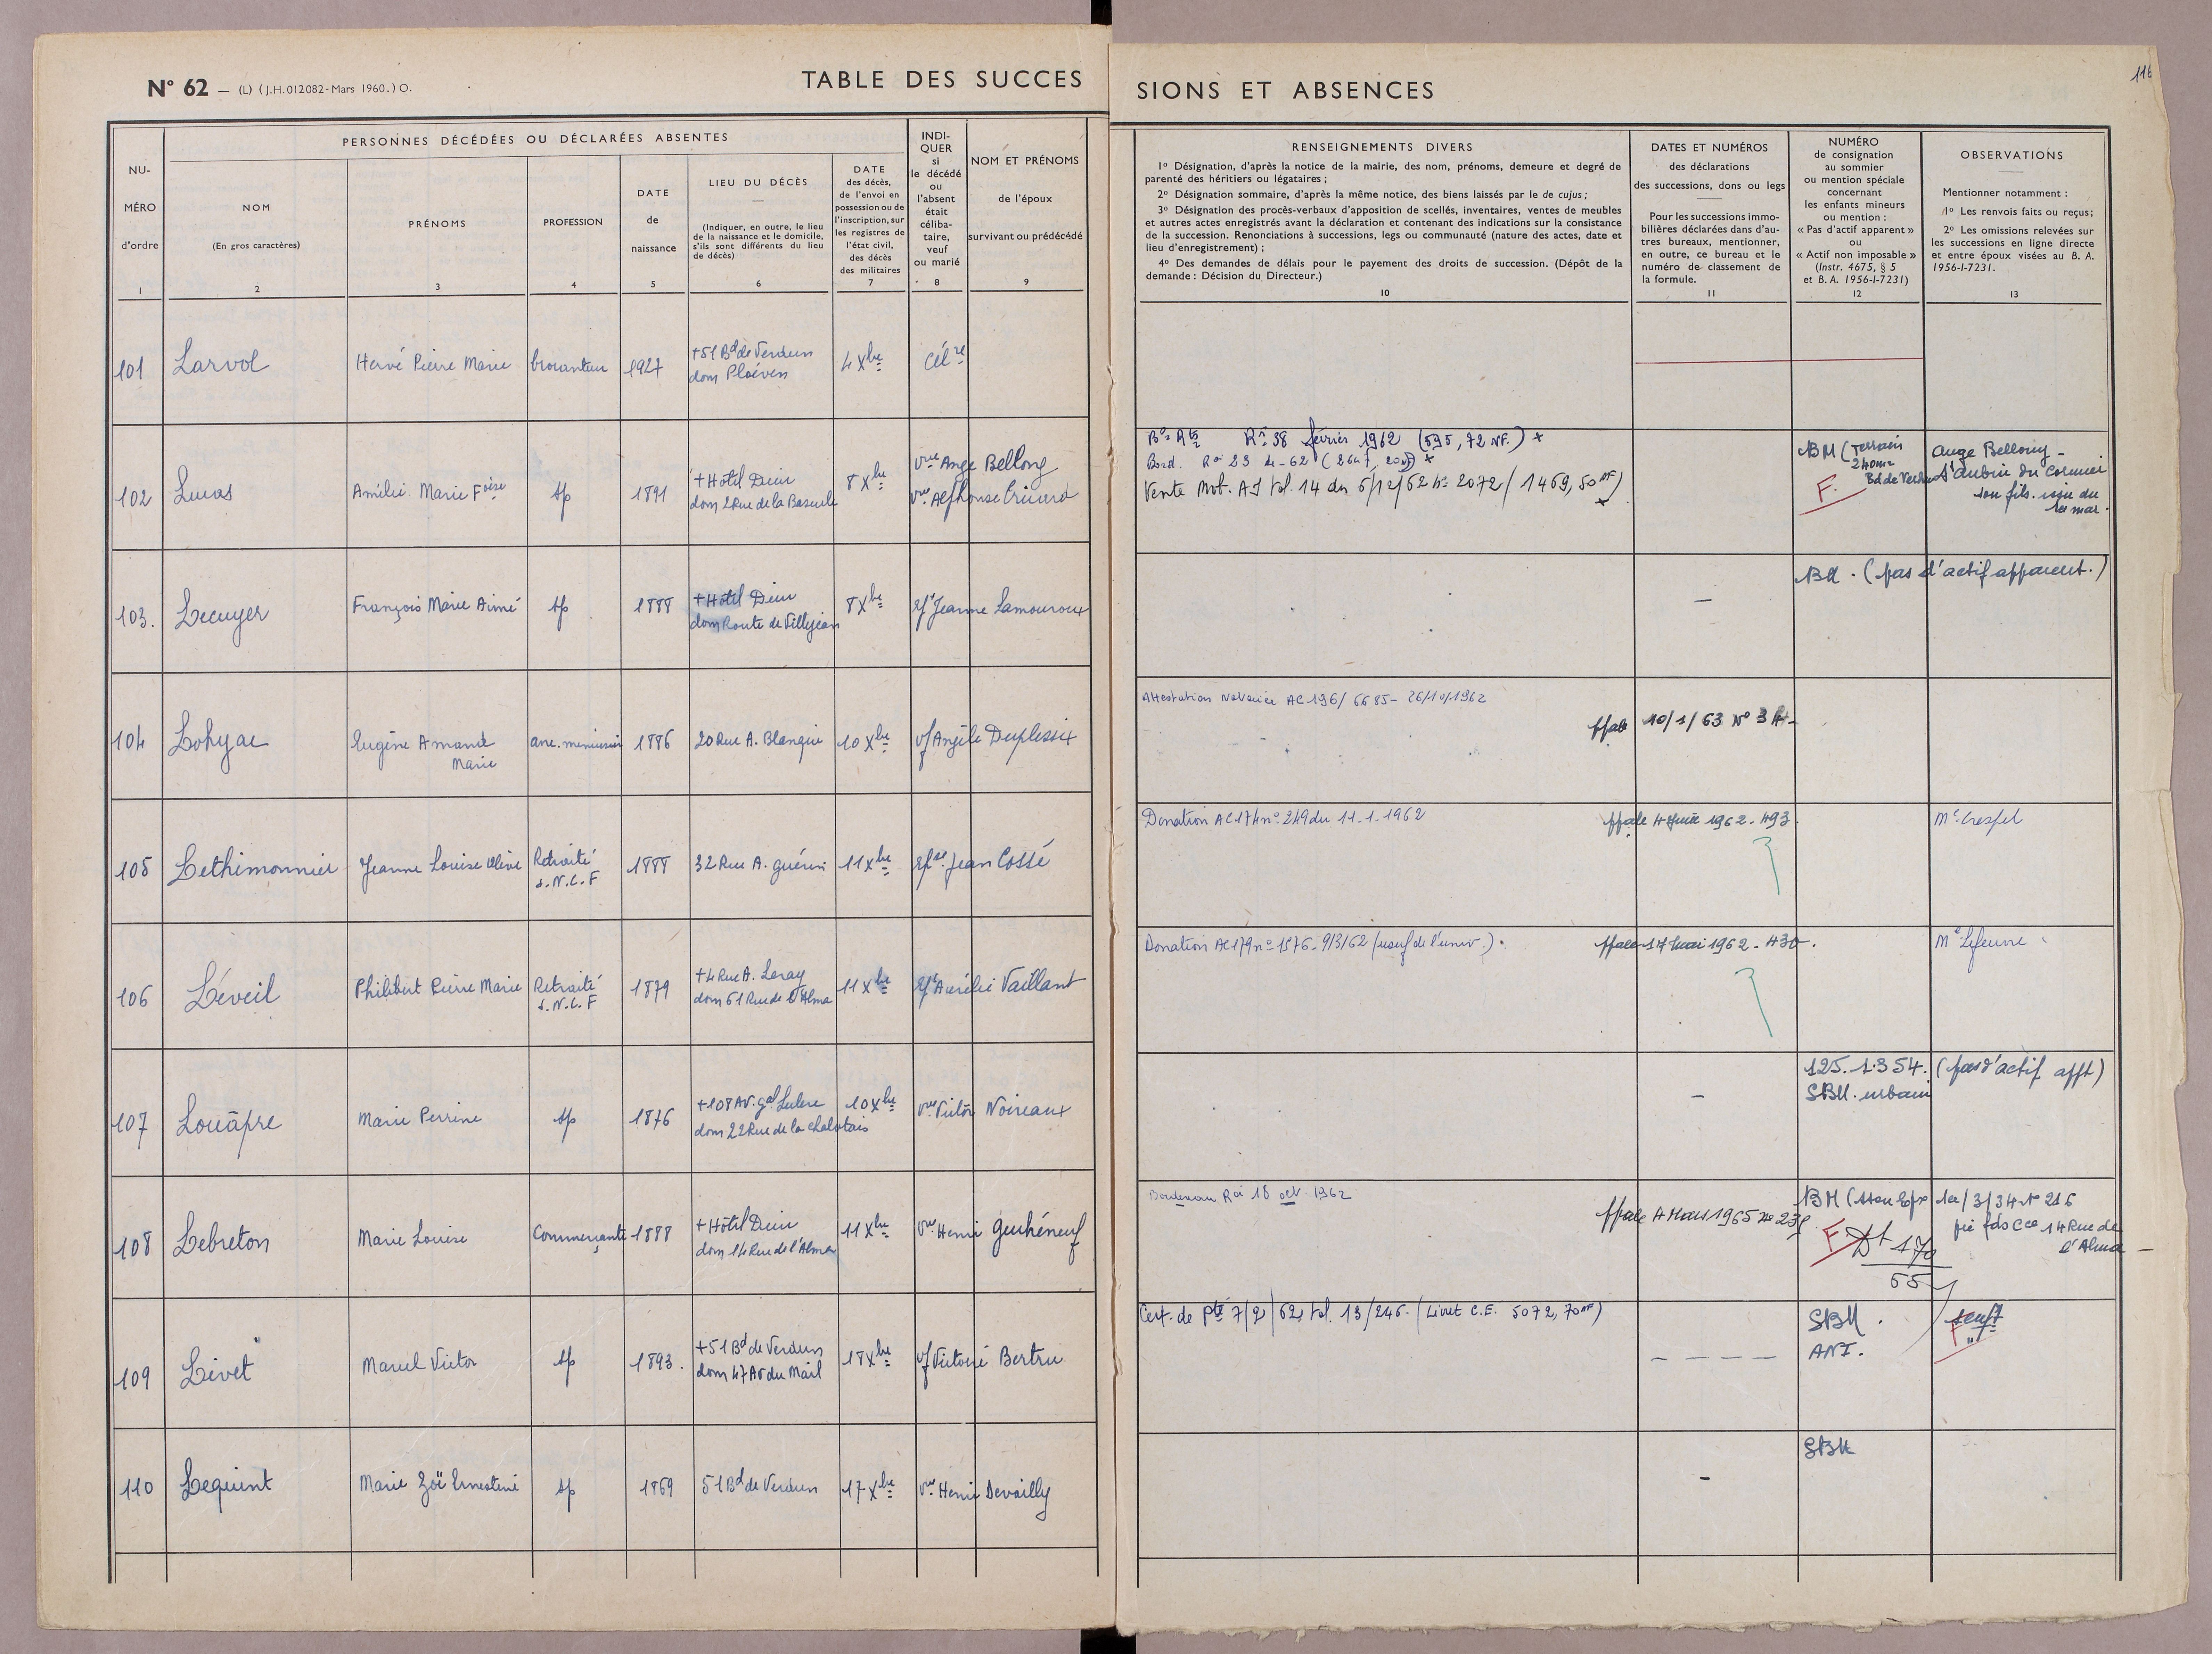 N° 62 — (L) (J.H. 012082 - Mars 1960.) O.
TABLE DES SUCCES
SIONS ET ABSENCES
116
NU-
MÉRO
d'ordre
1
PERSONNES DÉCÉDÉES OU DÉCLARÉES ABSENTES
NOM
(En gros caractères)
2
PRÉNOMS
3
PROFESSION
4
DATE
de
naissance
5
LIEU DU DÉCÈS
(Indiquer, en outre, le lieu
de la naissance et le domicile,
s'ils sont différents du lieu
de décès)
6
DATE
des décès,
de l'envoi en
possession ou de
l'inscription, sur
les registres de
l'état civil,
des décès
des militaires
7
INDI-
QUER
si
le décédé
ou
l'absent
était
céliba-
taire,
veuf
ou marié
8
NOM ET PRÉNOMS
de l'époux
survivant ou prédécédé
9
RENSEIGNEMENTS DIVERS
1° Désignation, d'après la notice de la mairie, des nom, prénoms, demeure et degré de
parenté des héritiers ou légataires ;
2° Désignation sommaire, d'après la même notice, des biens laissés par le de cujus ;
3° Désignation des procès-verbaux d'apposition de scellés, inventaires, ventes de meubles
et autres actes enregistrés avant la déclaration et contenant des indications sur la consistance
de la succession. Renonciations à successions, legs ou communauté (nature des actes, date et
lieu d'enregistrement) ;
4° Des demandes de délais pour le payement des droits de succession. (Dépôt de la
demande : Décision du Directeur.)
10
DATES ET NUMÉROS
des déclarations
des successions, dons ou legs
Pour les successions immo-
bilières déclarées dans d'au-
tres bureaux, mentionner,
en outre, ce bureau et le
numéro de classement de
la formule.
11
NUMÉRO
de consignation
au sommier
ou mention spéciale
concernant
les enfants mineurs
ou mention :
« Pas d'actif apparent »
ou
« Actif non imposable »
(Instr. 4675, § 5
et B. A. 1956-I-7231)
12
OBSERVATIONS
Mentionner notamment :
1° Les renvois faits ou reçus;
2° Les omissions relevées sur
les successions en ligne directe
et entre époux visées au B. A.
1956-I-7231.
13
101 Larvol Hervé Pierre Marie brocanteur 1927
+ 51 Bd de Verdun
dom Ploéven
4 Xbre Cél re
102 Lucas Amélie Marie Foise sp 1891
+ Hôtel Dieu
dom 2 Rue de la Bascule
8 Xbre
vve Ange Bellony
vve Alphonse Erivard
Rt 38 février 1962 (595,72 NF.) +
Bord. 23 4-62
Vente Mob. AJ Vol. 14 du 5/12/62 n° 2072 / 1469,50 NF)
BM (Terrain
240m2
Bd de Verdun
F.
Ange Bellony -
St Aubin du Cormier
son fils. issu du
1er mar.
103. Lecuyer François Marie Aimé sp 1888
+ Hôtel Dieu
dom Route de Villejean
8 Xbre Jeanne Lamouroux
—
BM. (pas d'actif apparent.)
104 Lohyac Eugène Amand
Marie
anc. menuisier 1886 20 Rue A. Blanqui 10 Xbre vf Angèle Duplessix
Attestation Notariée AC 196/ 6685 - 26/10/1962
10/1/63 N° 34
105 Lethimonnier Jeanne Louise Olive
Retraité
S.N.C.F
1888 32 Rue A. Guérin 11 Xbre Jean Cossé
Donation AC 174 n° 249 du 11.1.1962
1962 - 493
Me Crespel
106 Léveil Philibert Pierre Marie
Retraité
S.N.C.F
1879
+ 4 Rue A. Leray
dom 61 Rue de l'Alma
11 Xbre Aurélie Vaillant
Donation AC 179 n° 1576 - 9/3/62 (usuf de l'univ.).
17 Mai 1962 - 430.
Me Lefeuvre
107 Louâpre Marie Perrine sp 1876
+ 108 Av. Gal Leclerc
dom 22 Rue de la Chalotais
10 Xbre vve Victor Noireaux
—
125.1354. (pas d'actif appt)
SBM. urbain
108 Lebreton Marie Louise Commerçante 1888
+ Hôtel Dieu
dom 14 Rue de l'Alma
11 Xbre vve Henri Guihéneuf
Bordereau Roi 18 oct 1962
4 Mars 1965 N° 239
BM
F.
1er/3/34 N° 216
fds Cce 14 Rue de
l'Alma —
109 Livet Marcel Victor sp 1893.
+ 51 Bd de Verdun
dom 47 Av du Mail
18 Xbre vf Victorine Bertru
Cert. de Pté 7/2/62, Vol. 13/246. (Livret C.E. 5072,70 NF)
— — — —
SBM.
ANI.
F
110 Lequint Marie Zoë Ernestine sp 1869 51 Bd de Verdun 17 Xbre vve Henri Devailly
-
SBM